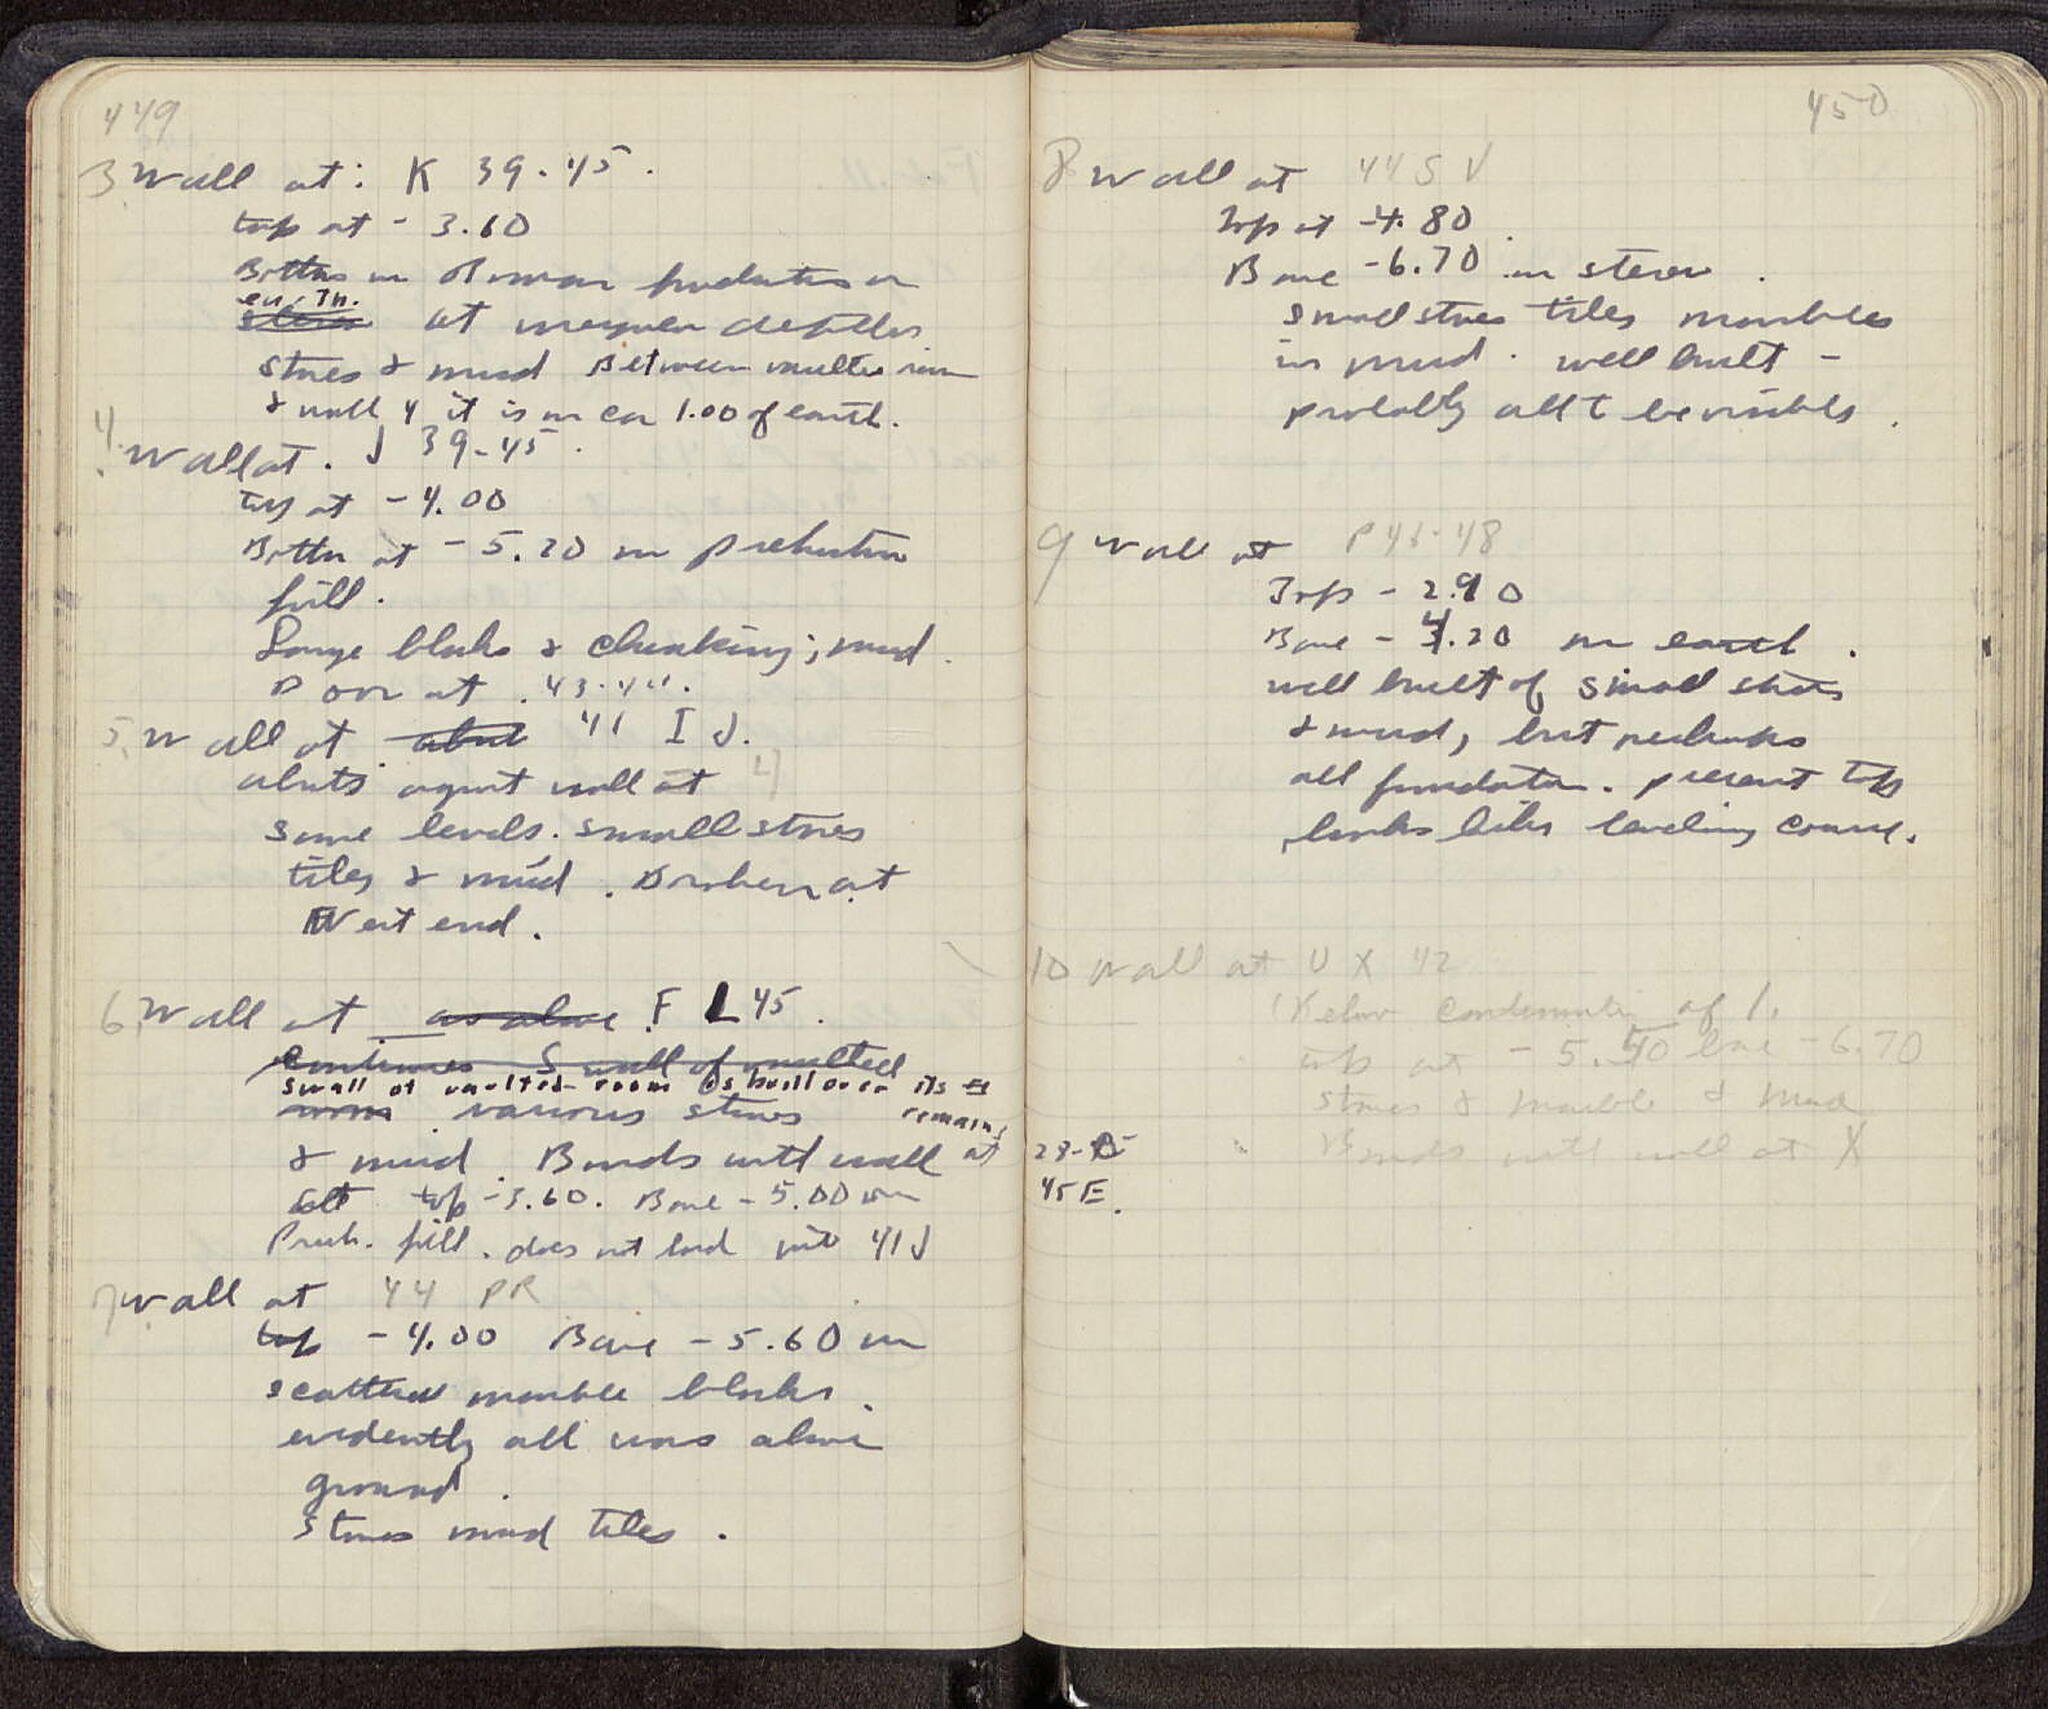 449
3 Wall at: K 39-45.
top at - 3.60
Bottom in Roman foundations or
earth.
at irregular depths
stones & mud Between vaulted room
& wall 4 it is in ca 1.00 of earth.
4. Wall at. J 39-45.
top at - 4.00
Bottom at - 5.20 in prehistoric
fill.
Large blocks & chunking; mud.
Door at 43-44.
5. Wall at about 41 I J.
abuts against wall at 4
same levels. small stones
tiles & mud. Broken at
West end.
6. Wall at as above F L 45.
continues S wall of vaulted
S wall of vaulted room is built over its
room various stones remains
& mud. Bonds with wall at
top - 3.60. Base - 5.00 in
Preh. fill. does not bond into 41 J
7. Wall at 44 PR
top - 4.00 Base - 5.60 in
scattered marble blocks.
evidently all was above
ground.
Stones mud tiles.
450
8 Wall at 44 S V
Top at -4.80
Base -6.70 in stereo.
small stones tiles marbles
in mud. well built -
probably all to be visible.
9 Wall at P 46-48
Top - 2.90
Base - 4.20 in earth.
well built of small stones
& mud, but perhaps
all foundation. present top
looks like leveling course.
10 Wall at U X 42
(Below continuation of 1.
top at - 5.50 base - 6.70
stones & marble & mud
Bonds with wall at X
45 E.